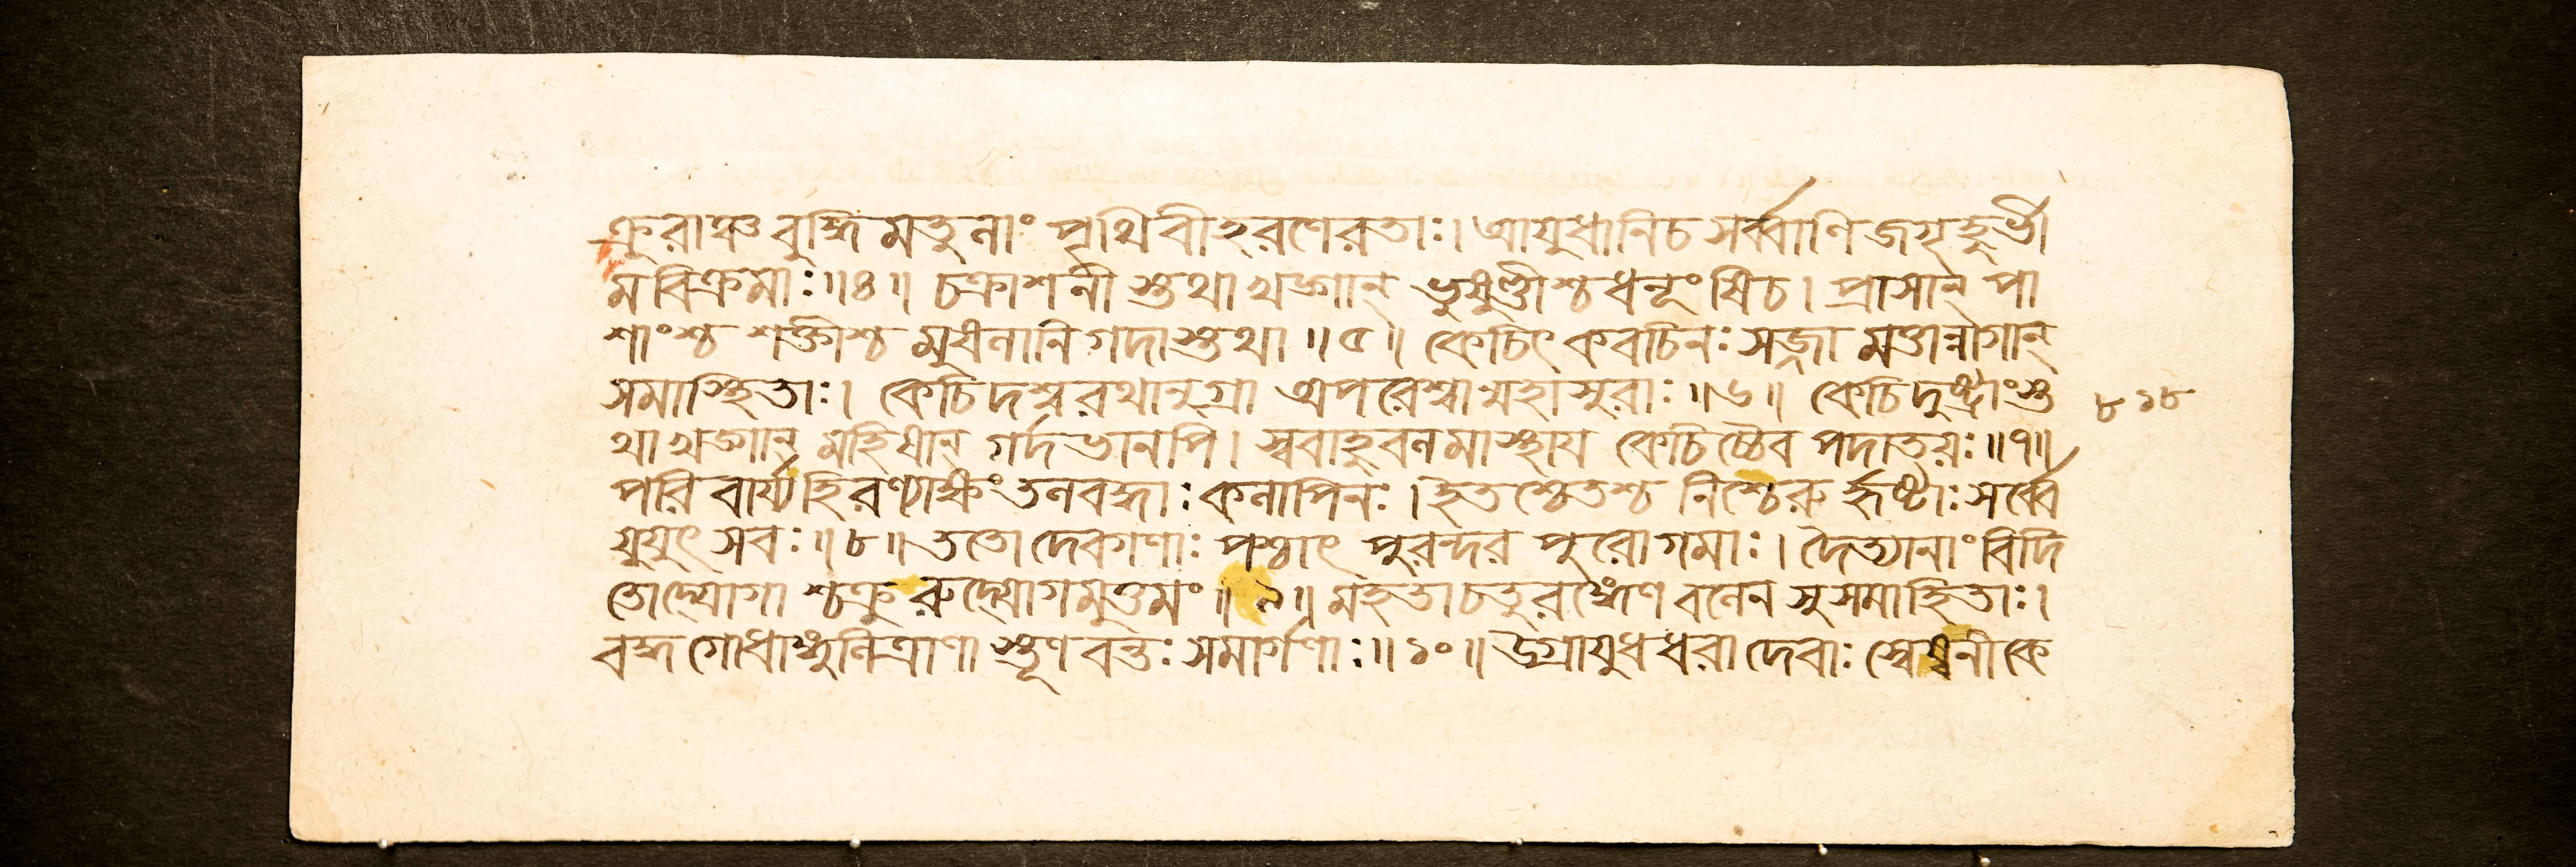 ক্রুরাঞ্চ বুদ্ধিমতুলাং পৃথিবীহরণেরতাঃ। আযুধানিচ সর্ব্বাণি জগৃহুর্ভী
মবিক্রমাঃ॥৪॥ চক্রাশনী স্তথা খড়্গান্ ভুষুণ্ডীশ্চ ধনূংষিচ। প্রাসান্ পা
শাংশ্চ শক্তীশ্চ মুষলানি গদাস্তথা॥৫॥ কেচিৎ কবচিনঃ সজ্জা মত্তান্নাগান্
সমাস্থিতাঃ। কেচিদশ্বরথানুগ্রা অপরেশ্বান্মহাসুরাঃ॥৬॥ কেচিদুষ্ট্রাংস্ত
৮১৮
থা খড়্গান্ মহিষান্ গর্দভানপি। স্ববাহুবলমাস্থায কেচিচ্চৈব পদাতয়ঃ॥৭॥
পরিবার্য্য হিরণ্যাক্ষং তলবদ্ধাঃ কলাপিনঃ। ইতশ্চেতশ্চ নিশ্চেরু র্হৃষ্টাঃ সর্ব্বে
যুযুৎসবঃ॥৮॥ ততো দেবগণাঃ পশ্চাৎ পুরন্দর পুরোগমাঃ। দৈত্যানাং বিদি
তোদ্যোগা শ্চক্রুরুদ্যোগমুত্তমং॥৯॥ মহতা চতুরঙ্গেণ বলেন সুসমাহিতাঃ।
বদ্ধগোধাঙ্গুলিত্রাণা স্তূণবন্তঃ সমার্গণাঃ॥১০॥ উগ্রাযুধধরা দেবাঃ স্বেষ্বনীকে